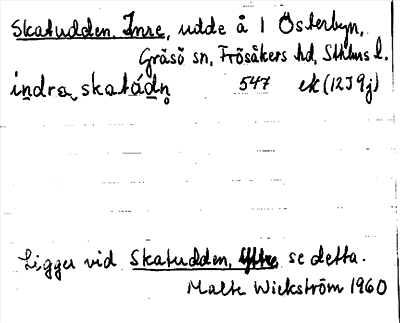 Skatudden, Inre, udde å 1 Österbyn,
Gräsö sn, Frösåkers hd, Sthlms l.
índra skatádn 547 ek (12J9j)
Ligger vid Skatudden, Yttre, se detta.
Malte Wickström 1960